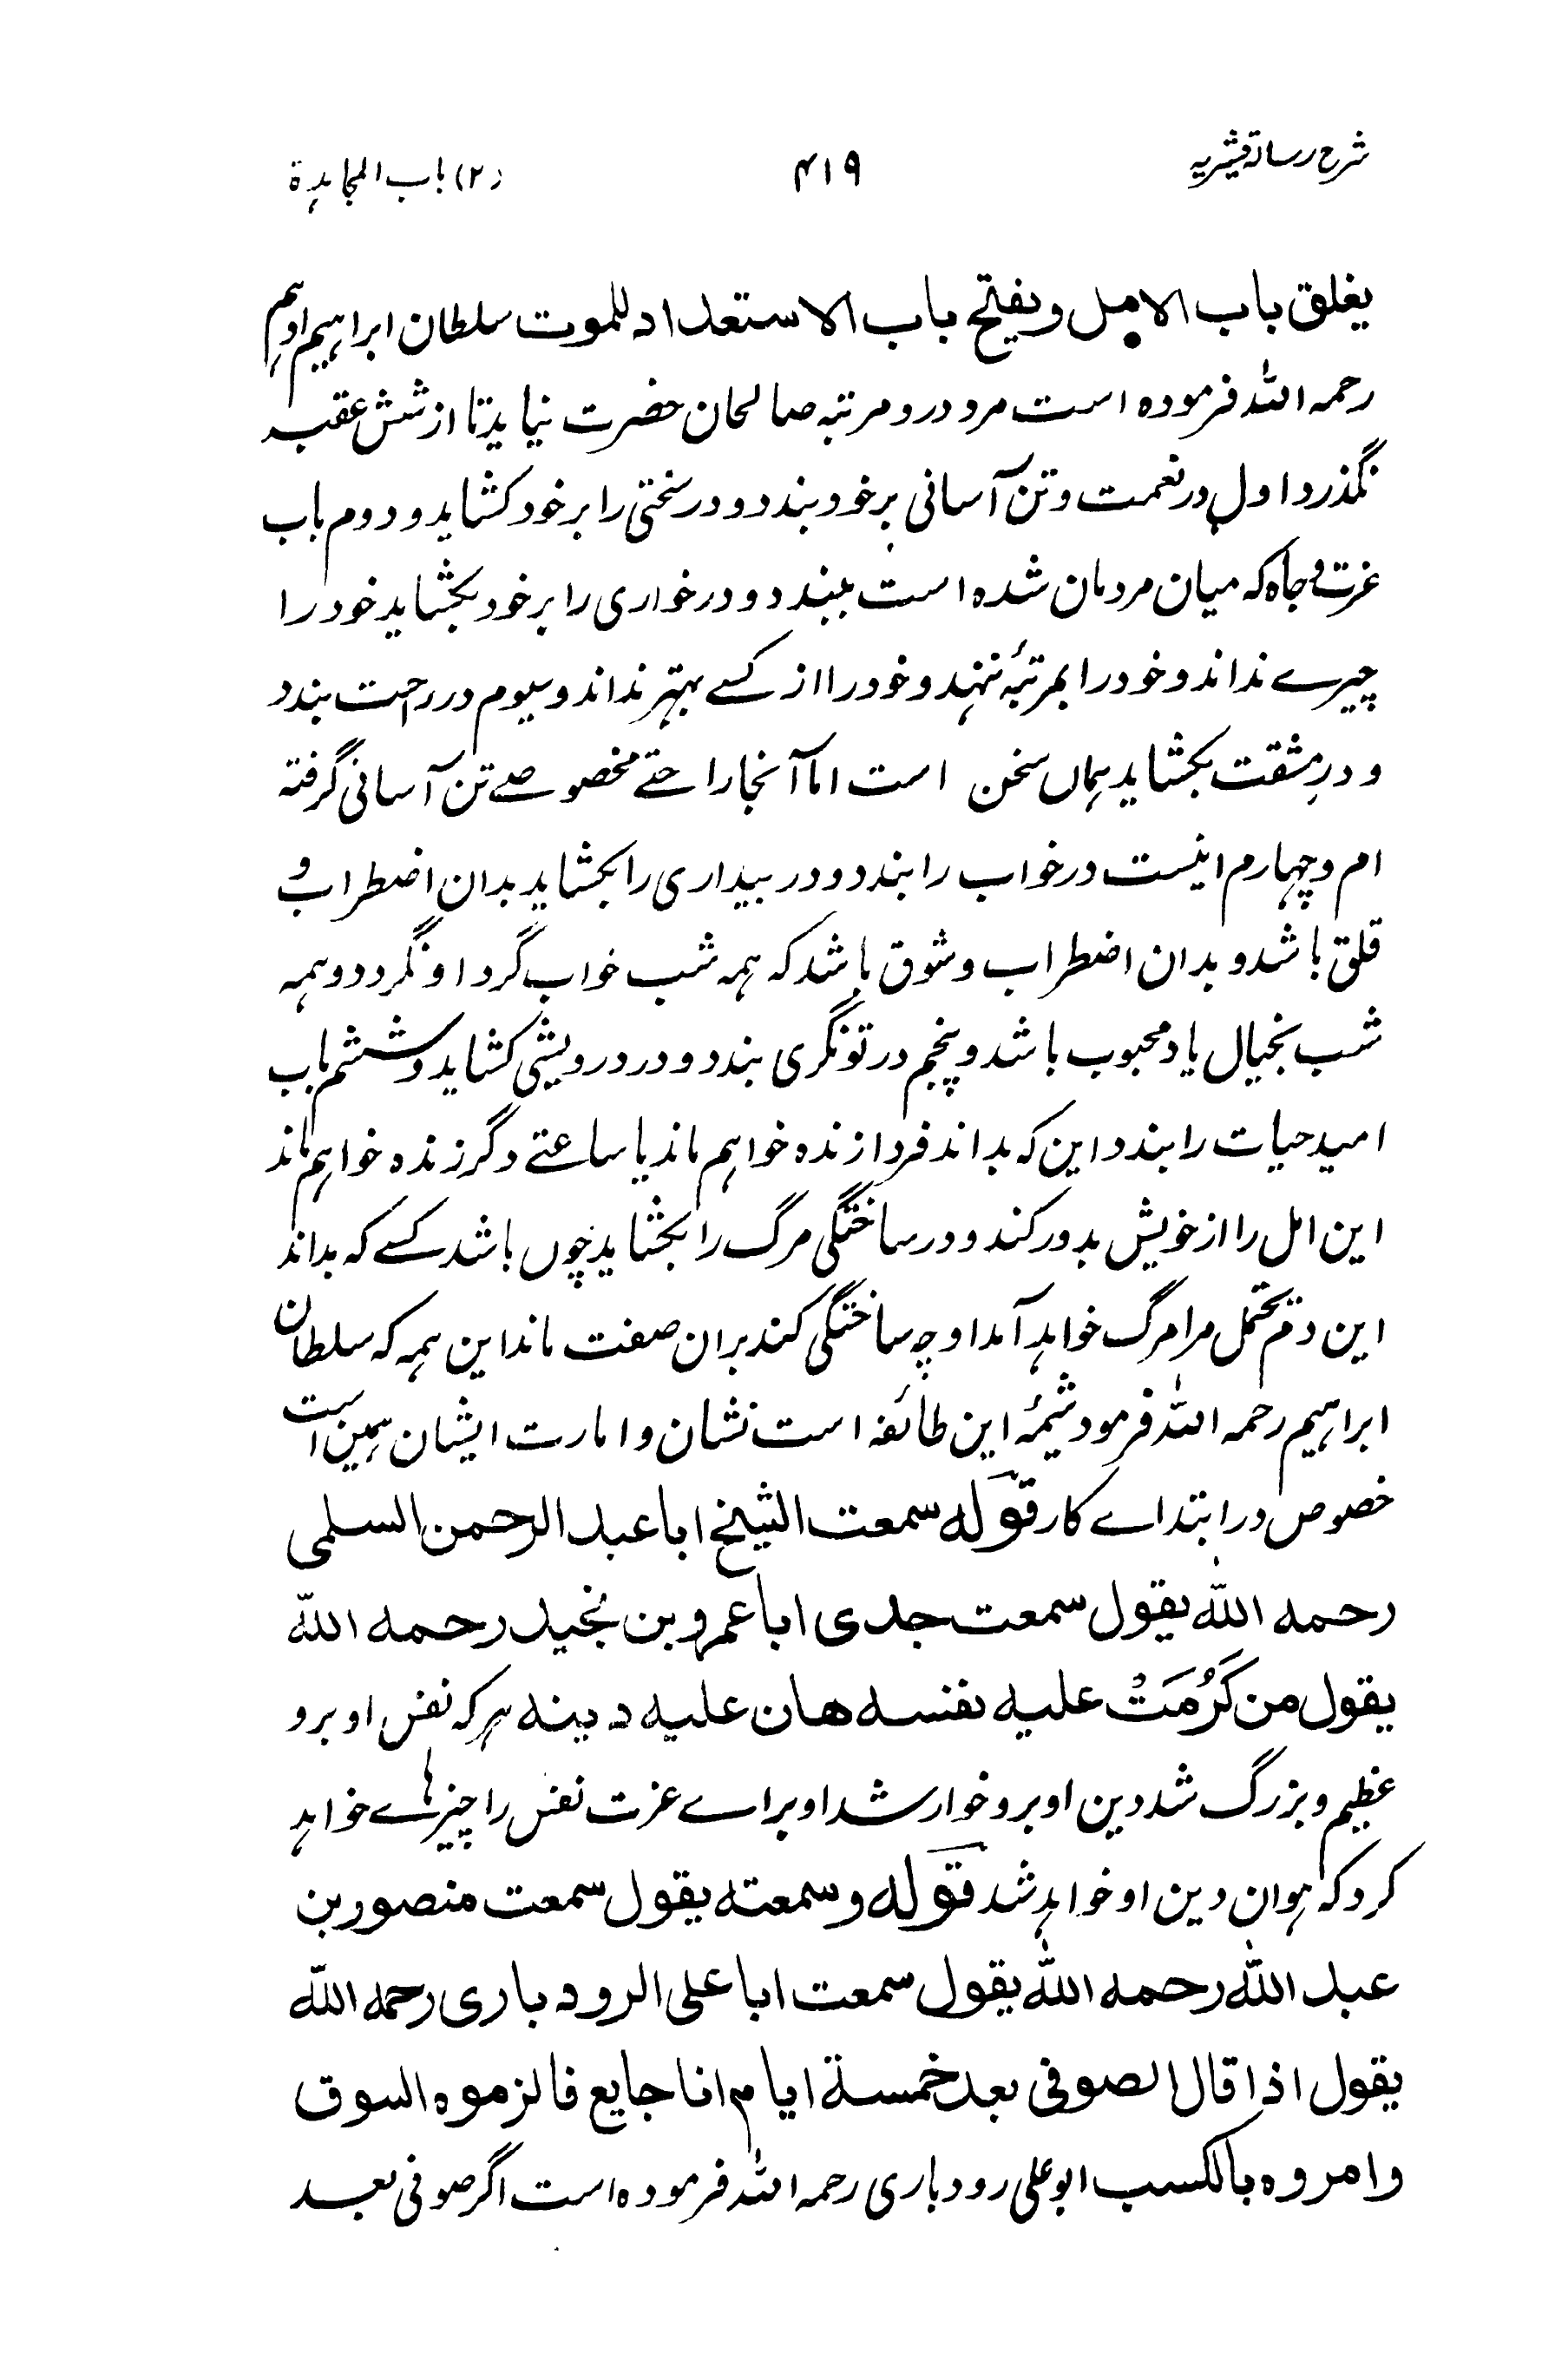 شرح رسالہ قشیریہ ۴۱۹ (۲) باب المجاہدۃ
یغلق باب الامل ویفتح باب الاستعداد للموت سلطان ابراہیم ادہم
رحمہ اللہ فرمودہ است مرد در و مرتبہ صالحان حضرت نیاید تا از شش عقبہ
نگذرد اول در نعمت و تن آسانی بر خود بندد و در سختی را بر خود کشاید و دوم باب
عزت و جاہ کہ میان مردمان شدہ است ببندد و در خواری را بر خود بکشاید خود را
چیزے نداند و خود را بمرتبۂ ننہد و خود را از کسے بہتر نداند و سیوم در راحت بندد
و در مشقت بکشاید ہماں سخن است اما آنجا راحتے مخصوصے تن آسانی گرفتہ
ام و چہارم اینست در خواب را بندد و در بیداری را بکشاید بدان اضطراب و
قلق باشد و بدان اضطراب و شوق باشد کہ ہمہ شب خواب گرد او نگردد و ہمہ
شب بخیال یاد محبوب باشد و پنجم در تونگری بندد و در درویشی کشاید و ششم باب
امید حیات را بندد این کہ بداند فردا زندہ خواہم ماند یا ساعتے دگر زندہ خواہم ماند
این امل را از خویش بدور کند و در ساختگی مرگ را بکشاید چوں باشد کسے کہ بداند
این دم محتمل مرا مرگ خواہد آمد او چہ ساختگی کند بران صفت ماند این ہمہ کہ سلطان
ابراہیم رحمہ اللہ فرمود شیمۂ این طائفہ است نشان و امارت ایشان ہمین است
خصوص در ابتداے کار قولہ سمعت الشیخ ابا عبد الرحمن السلمی
رحمہ اللہ یقول سمعت جدی ابا عمرو بن نجید رحمہ اللہ
یقول من کَرُمَتْ علیہ نفسہ ھان علیہ دینہ ہر کہ نفس او برو
عظیم و بزرگ شد دین او برو خوار شد او براے عزت نفس را چیزہاے خواہد
کرد کہ ہوان دین او خواہد شد قولہ وسمعتہ یقول سمعت منصور بن
عبد اللہ رحمہ اللہ یقول سمعت ابا علی الرودباری رحمہ اللہ
یقول اذا قال الصوفی بعد خمسۃ ایام انا جایع فالزموہ السوق
وامروہ بالکسب ابو علی رودباری رحمہ اللہ فرمودہ است اگر صوفی بعد